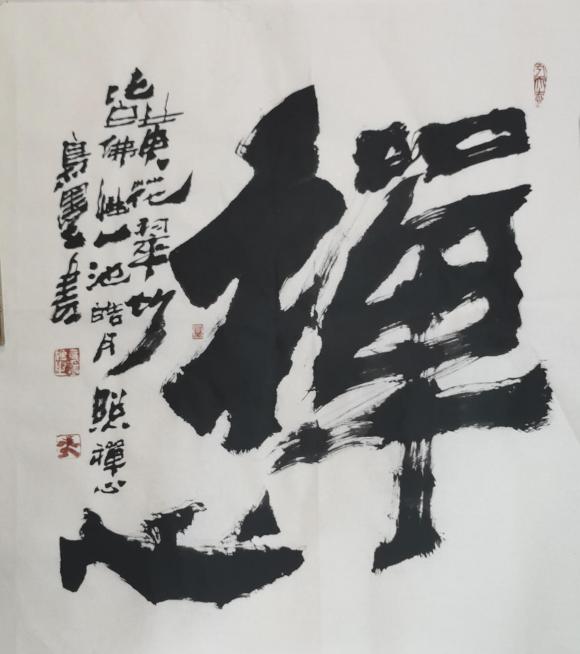 禪
心
黄花翠竹
皆佛性一池皓月照禪心
墨書